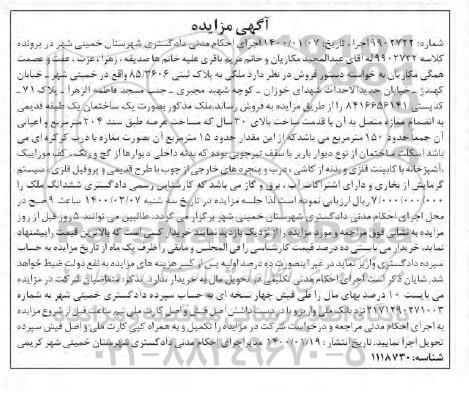 آگهی مزایده
شماره: ۹۹۰۲۷۲۲اجرا، تاریخ: ۱۴۰۰/۰۱/۰۷ اجرای احکام مدنی دادگستری شهرستان خمینی شهر در پرونده
کلاسه ۹۹۰۲۷۲۲له آقای عبدالمجید مکاریان و خانم مریم باقری علیه خانم ها صدیقه، زهرا، عزت، عفت و عصمت
همگی مکاریان به خواسته دستور فروش در نظر دارد ملکی به پلاک ثبتی ۸۵/۳۶۰۶ واقع در خمینی شهر - خیابان
کهندژ - خیابان جدیدالاحداث شهدای خوزان - کوچه شهید مجیری - جنب مسجد فاطمه الزهرا - پلاک ۷۱ -
کدپستی ۸۴۱۶۶۵۶۱۴۱ را از طریق مزایده به فروش رساند.ملک مذکور بصورت یک ساختمان یک طبقه قدیمی
به انضمام مغازه متصل به آن با قدمت ساخت بالای ۳۰ سال که مساحت عرصه طبق سند ۲۰۴ مترمربع و اعیانی
آن جمعا حدود ۱۵۰ مترمربع می باشد که از این مقدار حدود ۱۵ مترمربع آن بصورت مغازه با درب کرکره ای می
باشد اسکلت ساختمان از نوع دیوار باربر با سقف تیرچوبی بوده که بدنه داخلی دیوارها از گچ و رنگ، کف موزاییک
،آشپزخانه با کابینت فلزی و بدنه از کاشی، درب و پنجره های خارجی از چوب با طرح قدیمی و پروفیل فلزی، سیستم
گرمایش از بخاری و دارای اشتراکات آب، برق و گاز می باشد که کارشناس رسمی دادگستری ششدانگ ملک را
۷/۰۰۰/۰۰۰/۰۰۰ ریال ارزیابی نموده است لذا جلسه مزایده در تاریخ سه شنبه ۱۴۰۰/۰۲/۰۷ ساعت ۹ صبح در
محل اجرای احکام مدنی دادگستری شهرستان خمینی شهر برگزار می گردد. طالبین می توانند ۵ روز قبل از روز
مزایده به نشانی فوق مراجعه و مورد مزایده را از نزدیک بازدید نمایند خریدار کسی است که بالاترین قیمت را پیشنهاد
نماید، خریدار می بایستی ده درصد قیمت کارشناسی را فی المجلس و مابقی را ظرف یک ماه از تاریخ مزایده به حساب
سپرده دادگستری واریز نماید در غیر اینصورت ده درصد اولیه پس از کسر هزینه های مزایده به نفع دولت ضبط خواهد
شد. شایان ذکر است اجرای احکام مدنی تکلیفی در تحویل مال به خریدار ندارد. تذکر: متقاضیان شرکت در مزایده
می بایست ۱۰ درصد بهای مال را طی فیش چهار نسخه ای به حساب سپرده دادگستری خمینی شهر به شماره
۲۱۷۱۲۹۰۲۷۱۰۰۳ نزد بانک ملی واریز و با در دست داشتن اصل فیش و اصل کارت ملی نیم ساعت قبل از شروع مزایده
به اجرای احکام مدنی مراجعه و درخواست شرکت در مزایده را تکمیل و به همراه کپی کارت ملی و اصل فیش سپرده
تحویل اجرا نمایید. تاریخ انتشار: ۱۴۰۰/۰۱/۱۹ مدیر اجرای احکام مدنی دادگستری شهرستان خمینی شهر کریمی
شناسه: ۱۱۱۸۷۳۰
۰۲۱-۸۸۳۴۹۶۷۰-۵